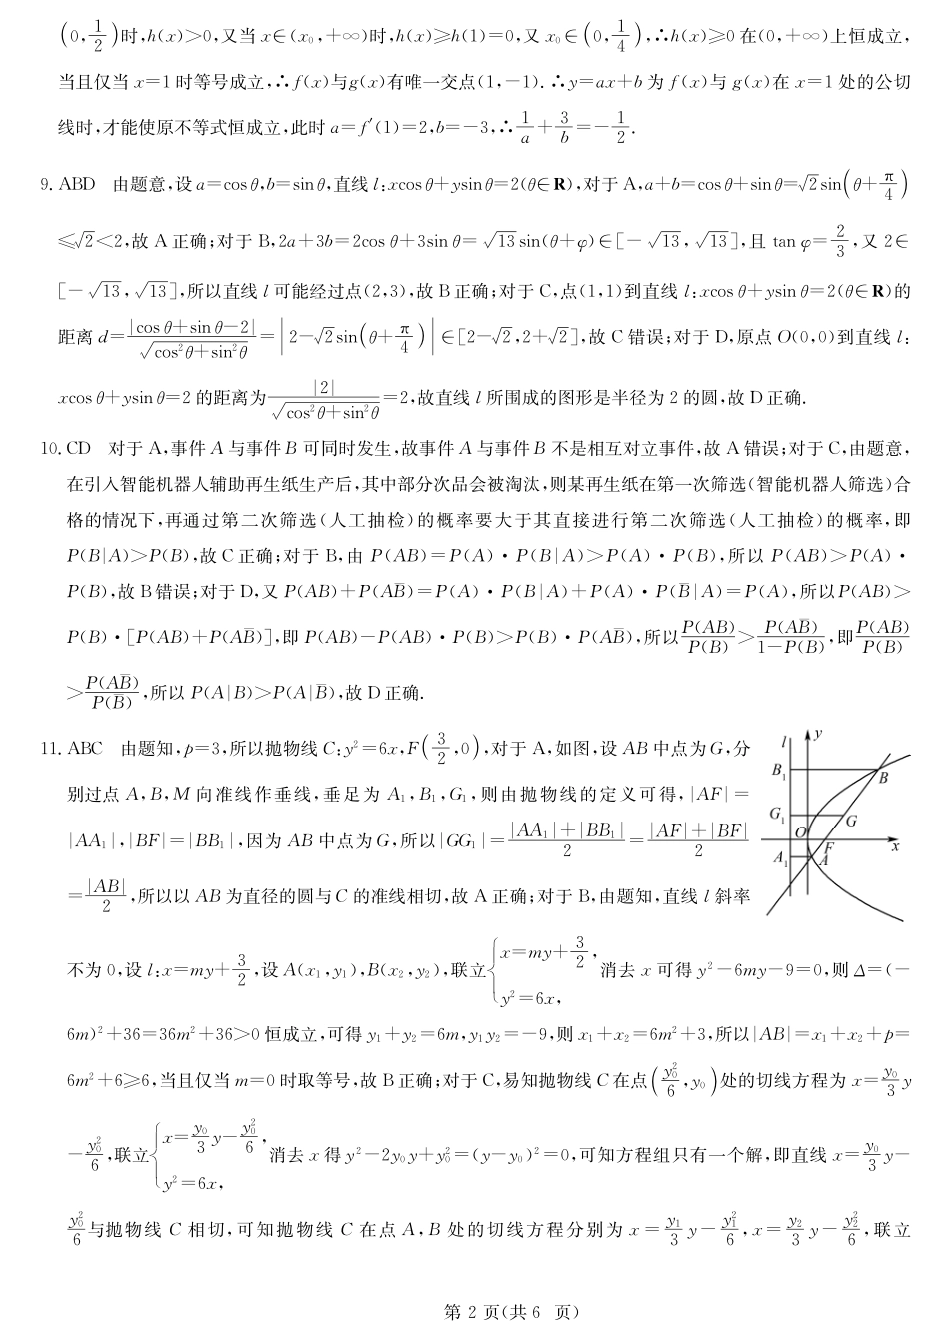 (0,1/2)时,h(x)>0,又当x∈(x₀,+∞)时,h(x)≥h(1)=0,又x₀∈(0,1/4),∴h(x)≥0在(0,+∞)上恒成立,
当且仅当x=1时等号成立,∴f(x)与g(x)有唯一交点(1,-1).∴y=ax+b为f(x)与g(x)在x=1处的公切
线时,才能使原不等式恒成立,此时a=f′(1)=2,b=-3,∴1/a+3/b=-1/2.
9. ABD 由题意,设a=cos θ,b=sin θ,直线l:xcos θ+ysin θ=2(θ∈R),对于A,a+b=cos θ+sin θ=√2sin(θ+π/4)
≤√2<2,故A正确;对于B,2a+3b=2cos θ+3sin θ=√13sin(θ+φ)∈[-√13,√13],且tan φ=2/3,又2∈
[-√13,√13],所以直线l可能经过点(2,3),故B正确;对于C,点(1,1)到直线l:xcos θ+ysin θ=2(θ∈R)的
距离d=|cos θ+sin θ-2|/√(cos²θ+sin²θ)=|2-√2sin(θ+π/4)|∈[2-√2,2+√2],故C错误;对于D,原点O(0,0)到直线l:
xcos θ+ysin θ=2的距离为|2|/√(cos²θ+sin²θ)=2,故直线l所围成的图形是半径为2的圆,故D正确.
10. CD 对于A,事件A与事件B可同时发生,故事件A与事件B不是相互对立事件,故A错误;对于C,由题意,
在引入智能机器人辅助再生纸生产后,其中部分次品会被淘汰,则某再生纸在第一次筛选(智能机器人筛选)合
格的情况下,再通过第二次筛选(人工抽检)的概率要大于其直接进行第二次筛选(人工抽检)的概率,即
P(B|A)>P(B),故C正确;对于B,由P(AB)=P(A)·P(B|A)>P(A)·P(B),所以P(AB)>P(A)·
P(B),故B错误;对于D,又P(AB)+P(AB̅)=P(A)·P(B|A)+P(A)·P(B̅|A)=P(A),所以P(AB)>
P(B)·[P(AB)+P(AB̅)],即P(AB)-P(AB)·P(B)>P(B)·P(AB̅),所以P(AB)/P(B)>P(AB̅)/(1-P(B)),即P(AB)/P(B)
>P(AB̅)/P(B̅),所以P(A|B)>P(A|B̅),故D正确.
11. ABC 由题知,p=3,所以抛物线C:y²=6x,F(3/2,0),对于A,如图,设AB中点为G,分
别过点A,B,M向准线作垂线,垂足为A₁,B₁,G₁,则由抛物线的定义可得,|AF|=
|AA₁|,|BF|=|BB₁|,因为AB中点为G,所以|GG₁|=(|AA₁|+|BB₁|)/2=(|AF|+|BF|)/2
=|AB|/2,所以以AB为直径的圆与C的准线相切,故A正确;对于B,由题知,直线l斜率
l
y
B₁
B
G₁
G
O
F
x
A₁
A
不为0,设l:x=my+3/2,设A(x₁,y₁),B(x₂,y₂),联立{x=my+3/2, y²=6x, 消去x可得y²-6my-9=0,则Δ=(-
6m)²+36=36m²+36>0恒成立,可得y₁+y₂=6m,y₁y₂=-9,则x₁+x₂=6m²+3,所以|AB|=x₁+x₂+p=
6m²+6≥6,当且仅当m=0时取等号,故B正确;对于C,易知抛物线C在点(y₀²/6,y₀)处的切线方程为x=y₀/3 y
-y₀²/6,联立{x=y₀/3 y-y₀²/6, y²=6x, 消去x得y²-2y₀y+y₀²=(y-y₀)²=0,可知方程组只有一个解,即直线x=y₀/3 y-
y₀²/6与抛物线C相切,可知抛物线C在点A,B处的切线方程分别为x=y₁/3 y-y₁²/6,x=y₂/3 y-y₂²/6,联立
第 2 页(共 6 页)